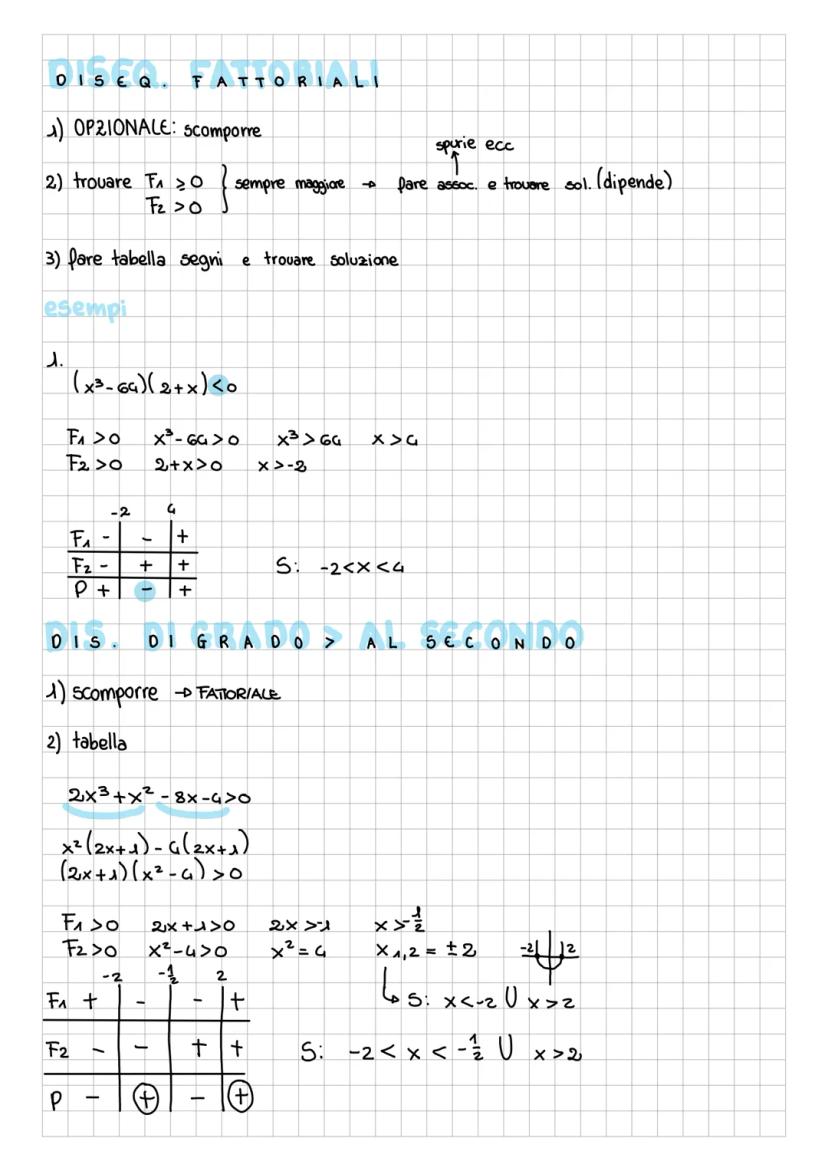 DISEQ. FATTORIALI
1) OPZIONALE: scomporre
spurie ecc
2) trovare F₁ ≥ 0 } sempre maggiore → fare assoc. e trovare sol. (dipende)
F₂ > 0
3) fare tabella segni e trovare soluzione
esempi
1.
(x³-64)(2+x)<0
F₁ >0 x³-64>0 x³>64 x>4
F₂ >0 2+x>0 x>-2
-2 4
F₁ - - +
F₂ - + +
P + - +
S: -2<x<4
DIS. DI GRADO > AL SECONDO
1) scomporre → FATTORIALE
2) tabella
2x³+x²-8x-4>0
x²(2x+1)-4(2x+1)
(2x+1)(x²-4)>0
F₁ >0 2x+1>0 2x>-1 x>-½
F₂ >0 x²-4>0 x²=4 x₁,₂ = ±2 -2 2
↳ S: x<-2 U x>2
-2 -½ 2
F₁ + - - +
F₂ - - + +
P - + - +
S: -2 < x < -½ U x>2